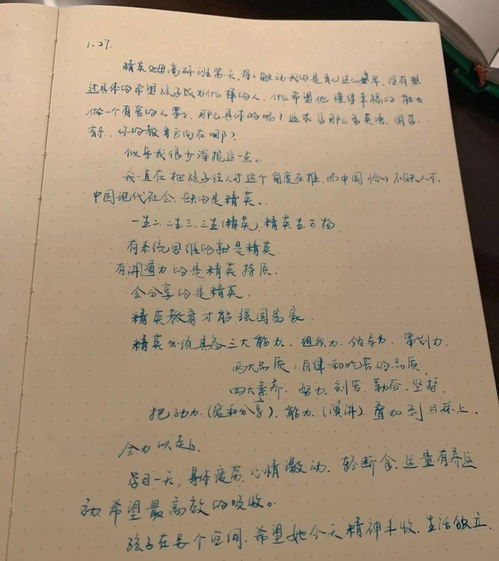 1.27.
精英父母高研班第一天，最触动我的是我这么多年，没有想
过具体的希望孩子成为什么样的人，什么希望他懂得幸福的能力
做一个有爱的人等，那么具体的呢？送孩子那么多英语，国学，
音乐，你的教育方向在哪？
似乎我很少深挖这一点。
我一直在把孩子往人才这个角度在推，而中国恰恰不缺人才
中国现代社会，缺的是精英。
一生二，二生三，三生(精英)，精英生万物
有系统思维的都是精英
有洞察力的是精英特质
会分享的是精英
精英教育才能强国易家
精英必须具备三大能力，组织力，领导力，策划力
两大品质，自律和吃苦的品质
四大素养，努力，刻苦，勤奋，坚持
把动力(爱和分享)，能力(演讲)叠加到目标上
全力以赴
学习一天，身体疲劳，心情激动，轻断食，适量有养运
动，希望最高效的吸收。
孩子在另个区间，希望她今天精神丰收，生活独立